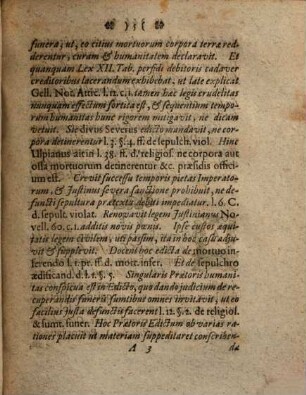 funera; ut, eo citius mortuorum corpora terræ red-
derentur, curam & humanitatem declaravit. Et
quanquam Lex XII. Tab. perfidi debitoris cadaver
creditoribus lacerandum exhibebat, ut late explicat
Gell. Noct. Attic. l. 11. c. 1. tamen hac legis crudelitas
nunquam effectum fortita est, & sequentium tempo-
rum humanitas hunc rigorem mitigavit, ne dicam
vetuit. Sic divus Severus edicto mandavit, ne cor-
pora detinerentur l. 3. §. 4. ff. de sepulch. viol. Hinc
Ulpianus ait in l. 38. ff. d. religios. ne corpora aut
ossa mortuorum detinerentur &c. præsidis offici-
um est. Crevit successu temporis pietas Imperato-
rum, & Justinus severa sanctione prohibuit, ne de-
functi sepultura prætextu debiti impediatur. l. 6. C.
d. sepult. violat. Renovavit legem Justinianus No-
vell. 60. c. 1. additis novis pœnis. Ipse enim æqui-
tatis legem civilem, uti passim, ita in hoc casu adju-
vit & supplevit. Docent hoc edicta de mortuo in-
ferendo l. 1. pr. ff. d. mort. infer. Et de sepulchro
ædificand. d. l. 1. §. 5. Singularis Prætoris humani-
tas conspicua est in Edicto, quo dando judicium de re-
cuperandis funerū sumtibus omnes invitavit, ut eo
facilius justa defunctis facerent l. 12. §. 2. de religiof.
& sumt. funer. Hoc Prætoris Edictum ob varias ra-
tiones placuit ut materiam suppeditaret conscriben-
A 3 da